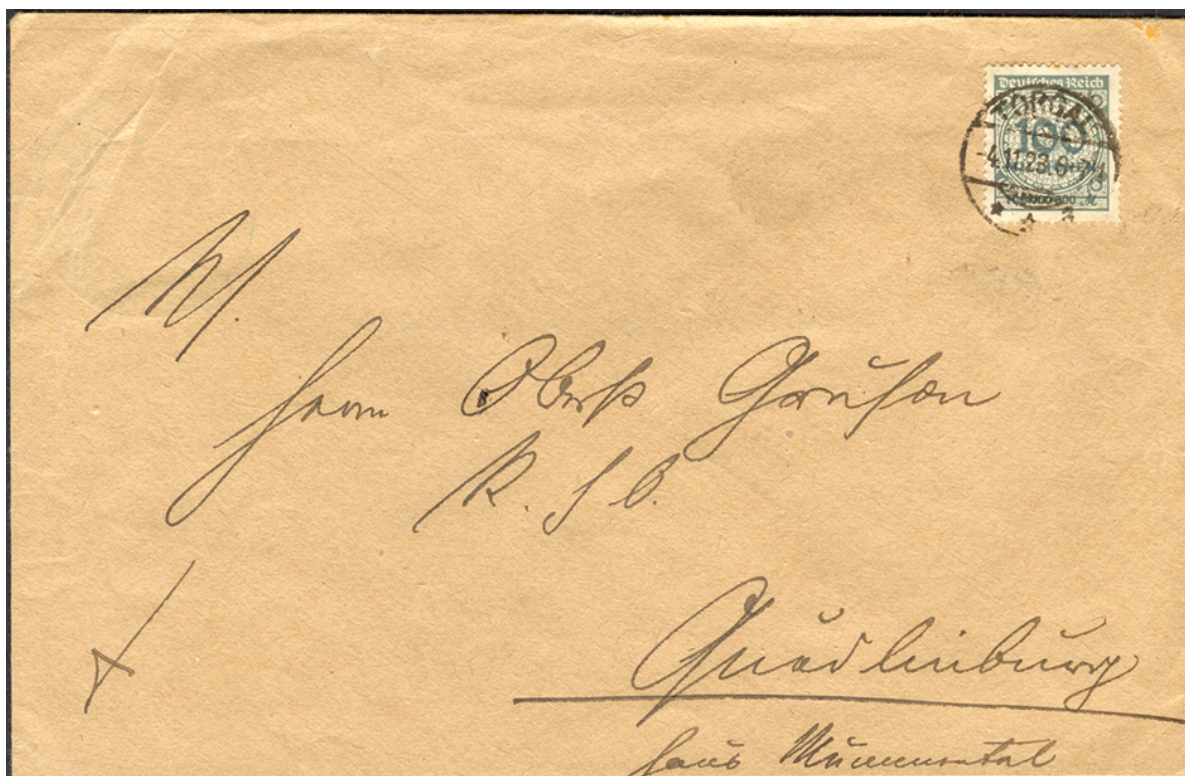 Deutsches Reich
TORGAU
100
-4.11.23.6-7
Herrn Oberst Gruson
R. J. B.
Quedlinburg
Haus Mummental